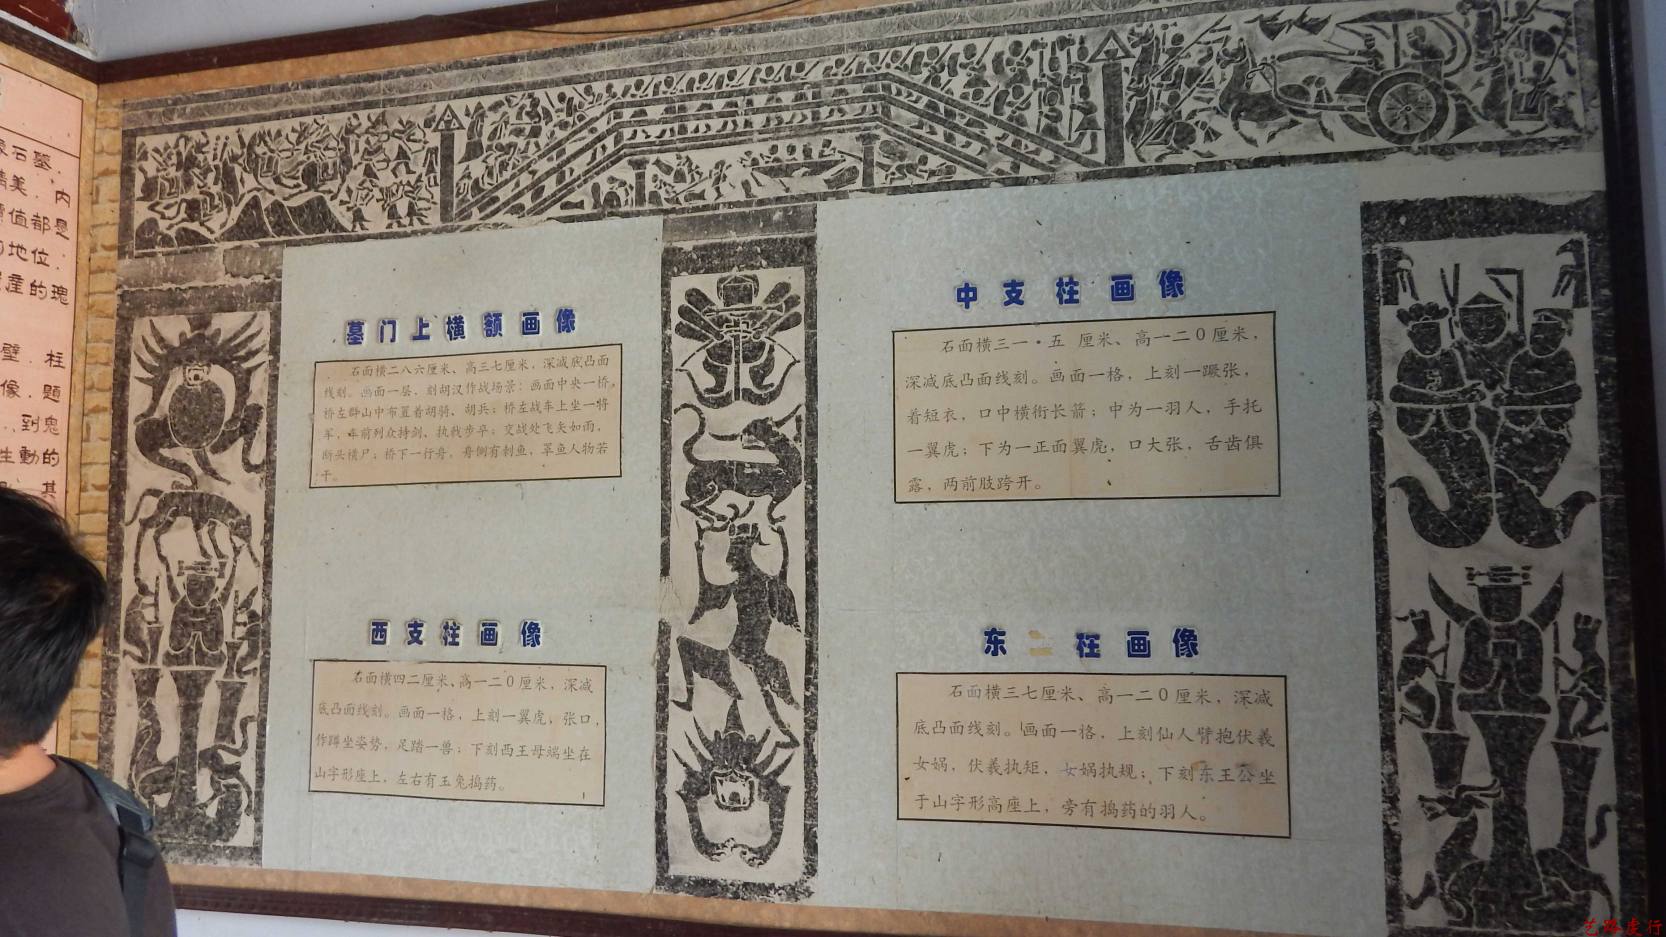 像石墓，
精美．内
價值都是
的地位．
遺産的瑰
壁．柱
像．題
到鬼
生動的
其
墓门上横额画像
石面横二八六厘米、高三七厘米，深减底凸面
线刻。画面一层，刻胡汉作战场景：画面中央一桥，
桥左群山中布置着胡骑、胡兵；桥右战车上坐一将
军，车前列众持剑、执戟步卒；交战处飞矢如雨，
断头横尸；桥下一行舟，舟侧有刺鱼，罩鱼人物若
干。
西支柱画像
石面横四二厘米、高一二0厘米，深减
底凸面线刻。画面一格，上刻一翼虎，张口，
作蹲坐姿势，足踏一兽；下刻西王母端坐在
山字形座上，左右有玉兔捣药。
中支柱画像
石面横三一·五 厘米、高一二0厘米，
深减底凸面线刻。画面一格，上刻一蹶张，
着短衣，口中横衔长箭；中为一羽人，手托
一翼虎；下为一正面翼虎，口大张，舌齿俱
露，两前肢跨开。
东 柱画像
石面横三七厘米、高一二0厘米，深减
底凸面线刻。画面一格，上刻仙人臂抱伏羲
女娲，伏羲执矩，女娲执规；下刻东王公坐
于山字形高座上，旁有捣药的羽人。
艺路虔行